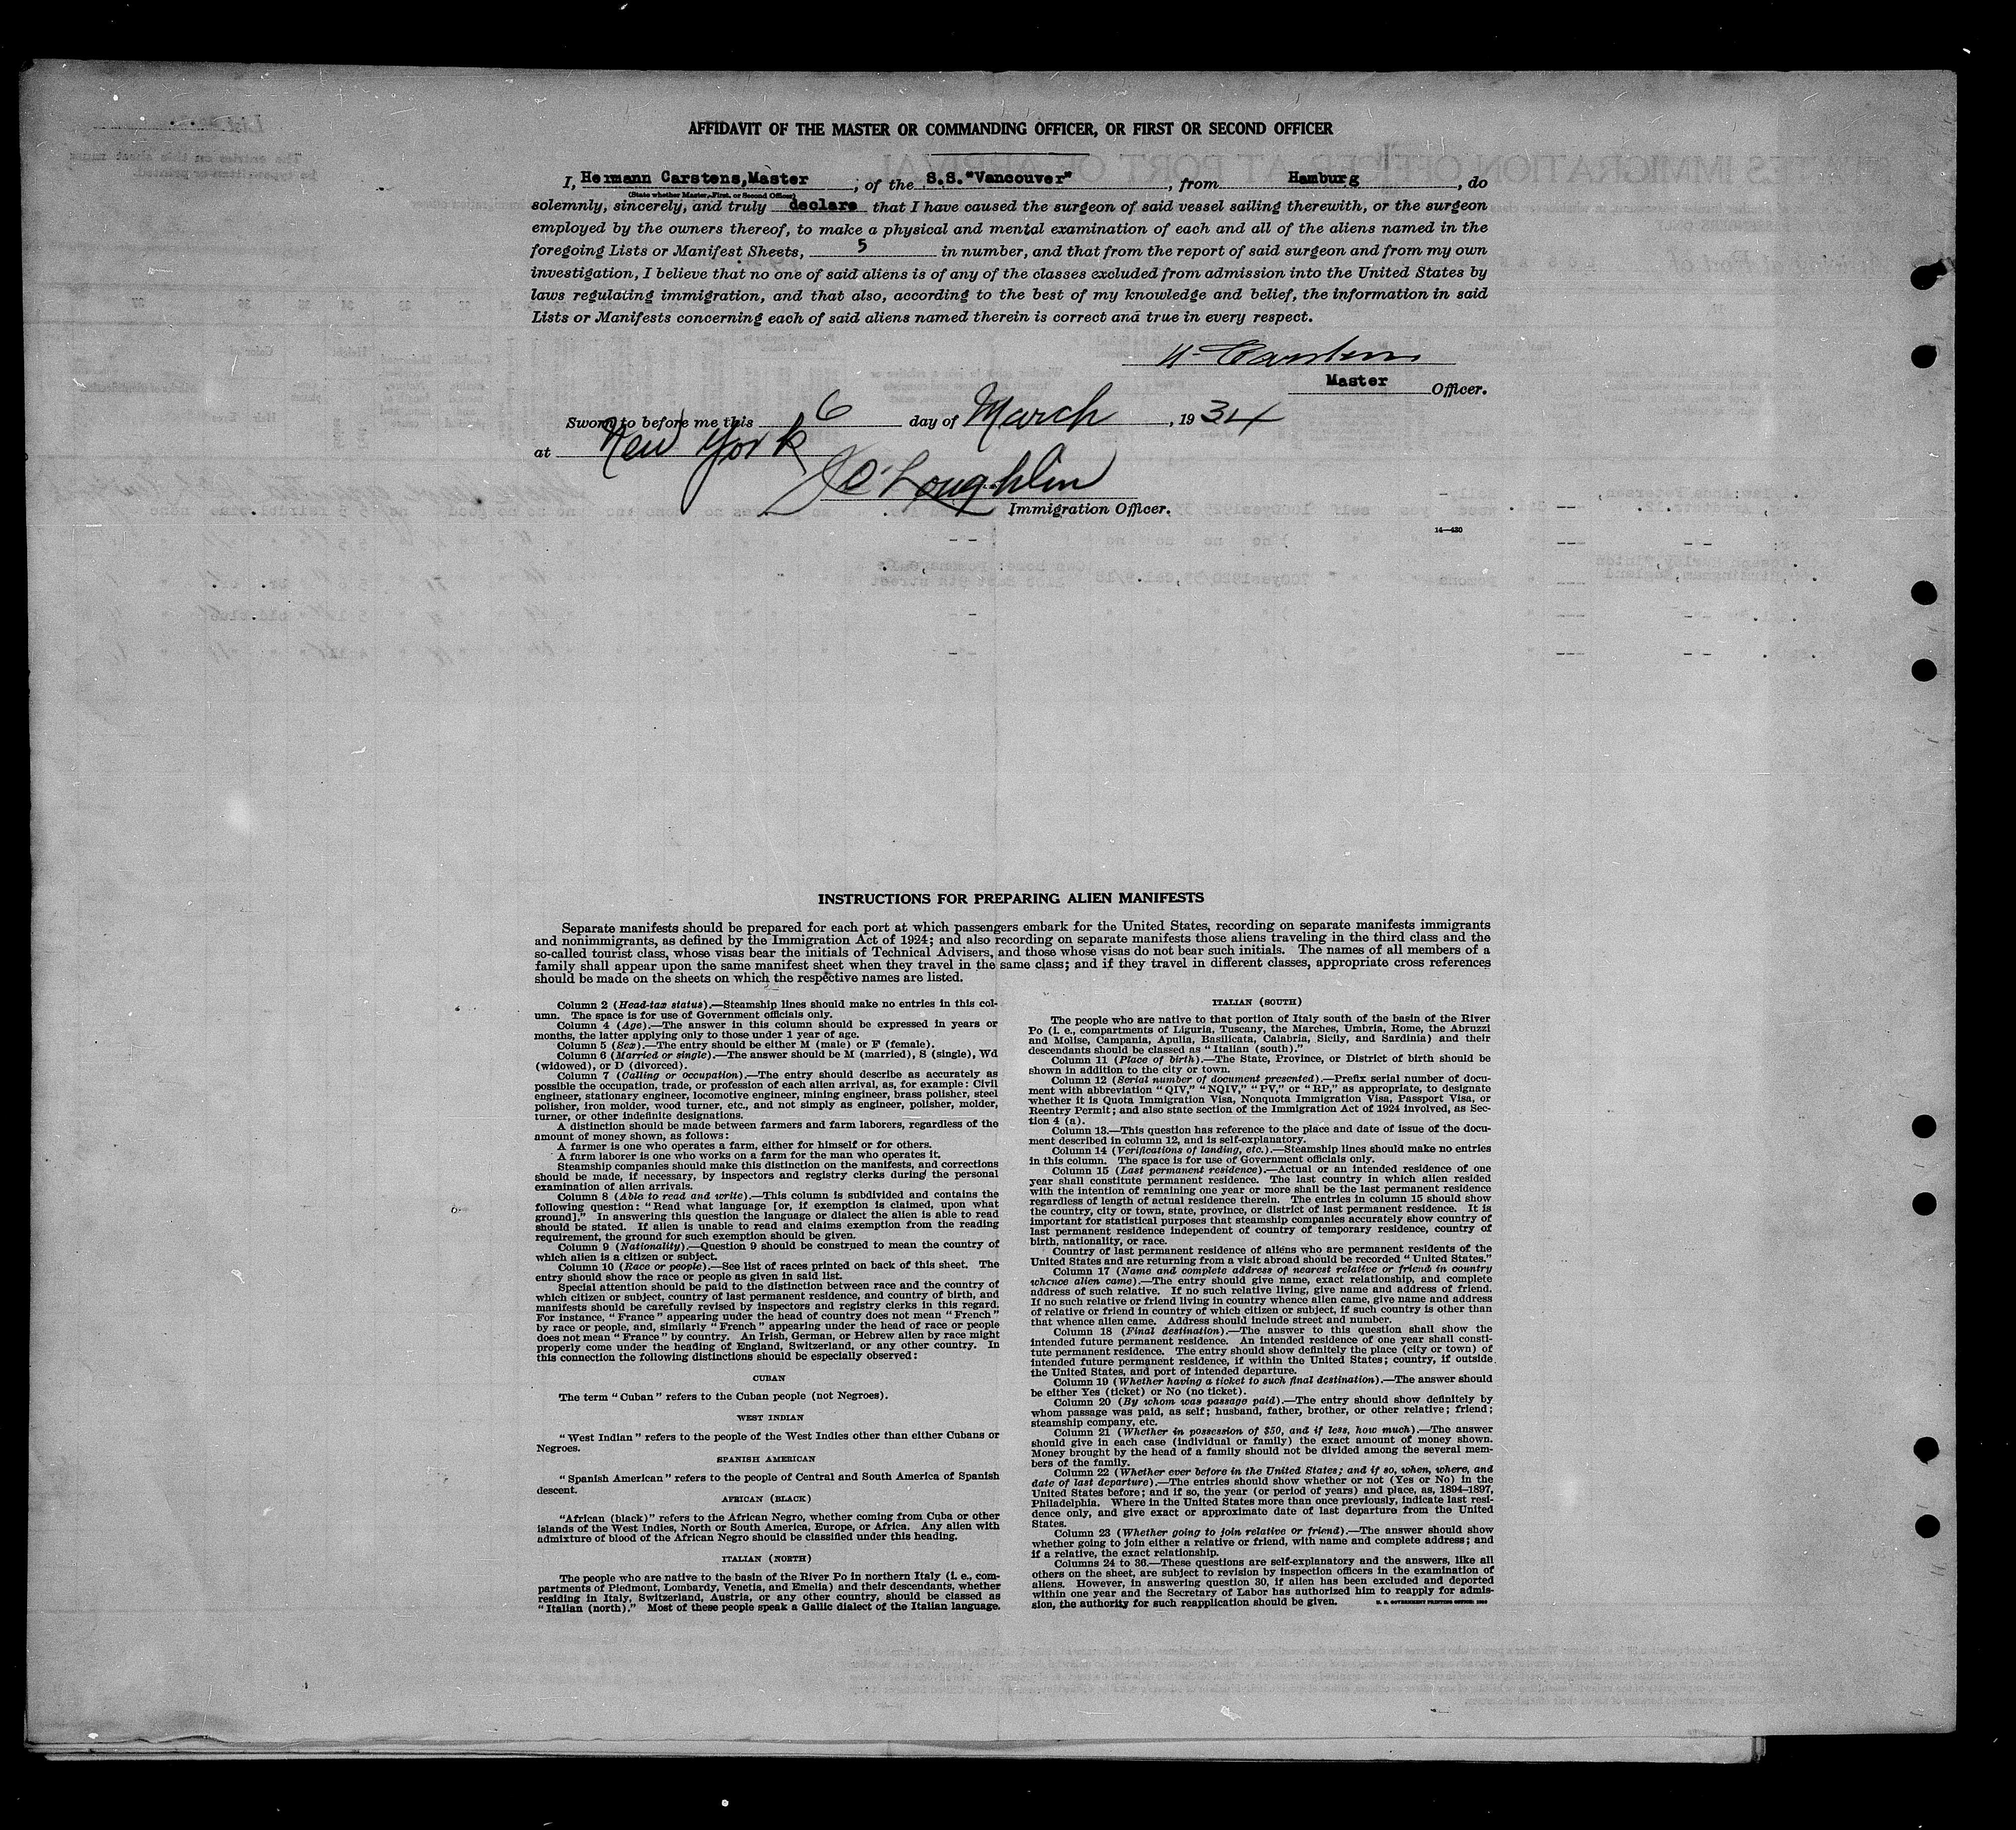 AFFIDAVIT OF THE MASTER OR COMMANDING OFFICER, OR FIRST OR SECOND OFFICER
I, Hermann Carstens, Master, of the S.S. "Vancouver", from Hamburg, do
(State whether Master, First, or Second Officer)
solemnly, sincerely, and truly declare that I have caused the surgeon of said vessel sailing therewith, or the surgeon
employed by the owners thereof, to make a physical and mental examination of each and all of the aliens named in the
foregoing Lists or Manifest Sheets, 5 in number, and that from the report of said surgeon and from my own
investigation, I believe that no one of said aliens is of any of the classes excluded from admission into the United States by
laws regulating immigration, and that also, according to the best of my knowledge and belief, the information in said
Lists or Manifests concerning each of said aliens named therein is correct and true in every respect.
H. Carstens
Master Officer.
Sworn to before me this 6 day of March, 1934
at New York
J O'Loughlin
Immigration Officer.
14—430
INSTRUCTIONS FOR PREPARING ALIEN MANIFESTS
Separate manifests should be prepared for each port at which passengers embark for the United States, recording on separate manifests immigrants
and nonimmigrants, as defined by the Immigration Act of 1924; and also recording on separate manifests those aliens traveling in the third class and the
so-called tourist class, whose visas bear the initials of Technical Advisers, and those whose visas do not bear such initials. The names of all members of a
family shall appear upon the same manifest sheet when they travel in the same class; and if they travel in different classes, appropriate cross references
should be made on the sheets on which the respective names are listed.
Column 2 (Head-tax status).—Steamship lines should make no entries in this col-
umn. The space is for use of Government officials only.
Column 4 (Age).—The answer in this column should be expressed in years or
months, the latter applying only to those under 1 year of age.
Column 5 (Sex).—The entry should be either M (male) or F (female).
Column 6 (Married or single).—The answer should be M (married), S (single), Wd
(widowed), or D (divorced).
Column 7 (Calling or occupation).—The entry should describe as accurately as
possible the occupation, trade, or profession of each alien arrival, as, for example: Civil
engineer, stationary engineer, locomotive engineer, mining engineer, brass polisher, steel
polisher, iron molder, wood turner, etc., and not simply as engineer, polisher, molder,
turner, or other indefinite designations.
A distinction should be made between farmers and farm laborers, regardless of the
amount of money shown, as follows:
A farmer is one who operates a farm, either for himself or for others.
A farm laborer is one who works on a farm for the man who operates it.
Steamship companies should make this distinction on the manifests, and corrections
should be made, if necessary, by inspectors and registry clerks during the personal
examination of alien arrivals.
Column 8 (Able to read and write).—This column is subdivided and contains the
following question: "Read what language [or, if exemption is claimed, upon what
ground]." In answering this question the language or dialect the alien is able to read
should be stated. If alien is unable to read and claims exemption from the reading
requirement, the ground for such exemption should be given.
Column 9 (Nationality).—Question 9 should be construed to mean the country of
which alien is a citizen or subject.
Column 10 (Race or people).—See list of races printed on back of this sheet. The
entry should show the race or people as given in said list.
Special attention should be paid to the distinction between race and the country of
which citizen or subject, country of last permanent residence, and country of birth, and
manifests should be carefully revised by inspectors and registry clerks in this regard.
For instance, "France" appearing under the head of country does not mean "French"
by race or people, and, similarly "French" appearing under the head of race or people
does not mean "France" by country. An Irish, German, or Hebrew alien by race might
properly come under the heading of England, Switzerland, or any other country. In
this connection the following distinctions should be especially observed:
CUBAN
The term "Cuban" refers to the Cuban people (not Negroes).
WEST INDIAN
"West Indian" refers to the people of the West Indies other than either Cubans or
Negroes.
SPANISH AMERICAN
"Spanish American" refers to the people of Central and South America of Spanish
descent.
AFRICAN (BLACK)
"African (black)" refers to the African Negro, whether coming from Cuba or other
islands of the West Indies, North or South America, Europe, or Africa. Any alien with
admixture of blood of the African Negro should be classified under this heading.
ITALIAN (NORTH)
The people who are native to the basin of the River Po in northern Italy (i. e., com-
partments of Piedmont, Lombardy, Venetia, and Emelia) and their descendants, whether
residing in Italy, Switzerland, Austria, or any other country, should be classed as
"Italian (north)." Most of these people speak a Gallic dialect of the Italian language.
ITALIAN (SOUTH)
The people who are native to that portion of Italy south of the basin of the River
Po (i. e., compartments of Liguria, Tuscany, the Marches, Umbria, Rome, the Abruzzi
and Molise, Campania, Apulia, Basilicata, Calabria, Sicily, and Sardinia) and their
descendants should be classed as "Italian (south)."
Column 11 (Place of birth).—The State, Province, or District of birth should be
shown in addition to the city or town.
Column 12 (Serial number of document presented).—Prefix serial number of docu-
ment with abbreviation "QIV," "NQIV," "PV," or "RP," as appropriate, to designate
whether it is Quota Immigration Visa, Nonquota Immigration Visa, Passport Visa, or
Reentry Permit; and also state section of the Immigration Act of 1924 involved, as Sec-
tion 4 (a).
Column 13.—This question has reference to the place and date of issue of the docu-
ment described in column 12, and is self-explanatory.
Column 14 (Verifications of landing, etc.).—Steamship lines should make no entries
in this column. The space is for use of Government officials only.
Column 15 (Last permanent residence).—Actual or an intended residence of one
year shall constitute permanent residence. The last country in which alien resided
with the intention of remaining one year or more shall be the last permanent residence
regardless of length of actual residence therein. The entries in column 15 should show
the country, city or town, state, province, or district of last permanent residence. It is
important for statistical purposes that steamship companies accurately show country of
last permanent residence independent of country of temporary residence, country of
birth, nationality, or race.
Country of last permanent residence of aliens who are permanent residents of the
United States and are returning from a visit abroad should be recorded "United States."
Column 17 (Name and complete address of nearest relative or friend in country
whence alien came).—The entry should give name, exact relationship, and complete
address of such relative. If no such relative living, give name and address of friend.
If no such relative or friend living in country whence alien came, give name and address
of relative or friend in country of which citizen or subject, if such country is other than
that whence alien came. Address should include street and number.
Column 18 (Final destination).—The answer to this question shall show the
intended future permanent residence. An intended residence of one year shall consti-
tute permanent residence. The entry should show definitely the place (city or town) of
intended future permanent residence, if within the United States; country, if outside
the United States, and port of intended departure.
Column 19 (Whether having a ticket to such final destination).—The answer should
be either Yes (ticket) or No (no ticket).
Column 20 (By whom was passage paid).—The entry should show definitely by
whom passage was paid, as self; husband, father, brother, or other relative; friend;
steamship company, etc.
Column 21 (Whether in possession of $50, and if less, how much).—The answer
should give in each case (individual or family) the exact amount of money shown.
Money brought by the head of a family should not be divided among the several mem-
bers of the family.
Column 22 (Whether ever before in the United States; and if so, when, where, and
date of last departure).—The entries should show whether or not (Yes or No) in the
United States before; and if so, the year (or period of years) and place, as, 1894–1897,
Philadelphia. Where in the United States more than once previously, indicate last resi-
dence only, and give exact or approximate date of last departure from the United
States.
Column 23 (Whether going to join relative or friend).—The answer should show
whether going to join either a relative or friend, with name and complete address; and
if a relative, the exact relationship.
Columns 24 to 36.—These questions are self-explanatory and the answers, like all
others on the sheet, are subject to revision by inspection officers in the examination of
aliens. However, in answering question 30, if alien has been excluded and deported
within one year and the Secretary of Labor has authorized him to reapply for admis-
sion, the authority for such reapplication should be given.
U. S. GOVERNMENT PRINTING OFFICE